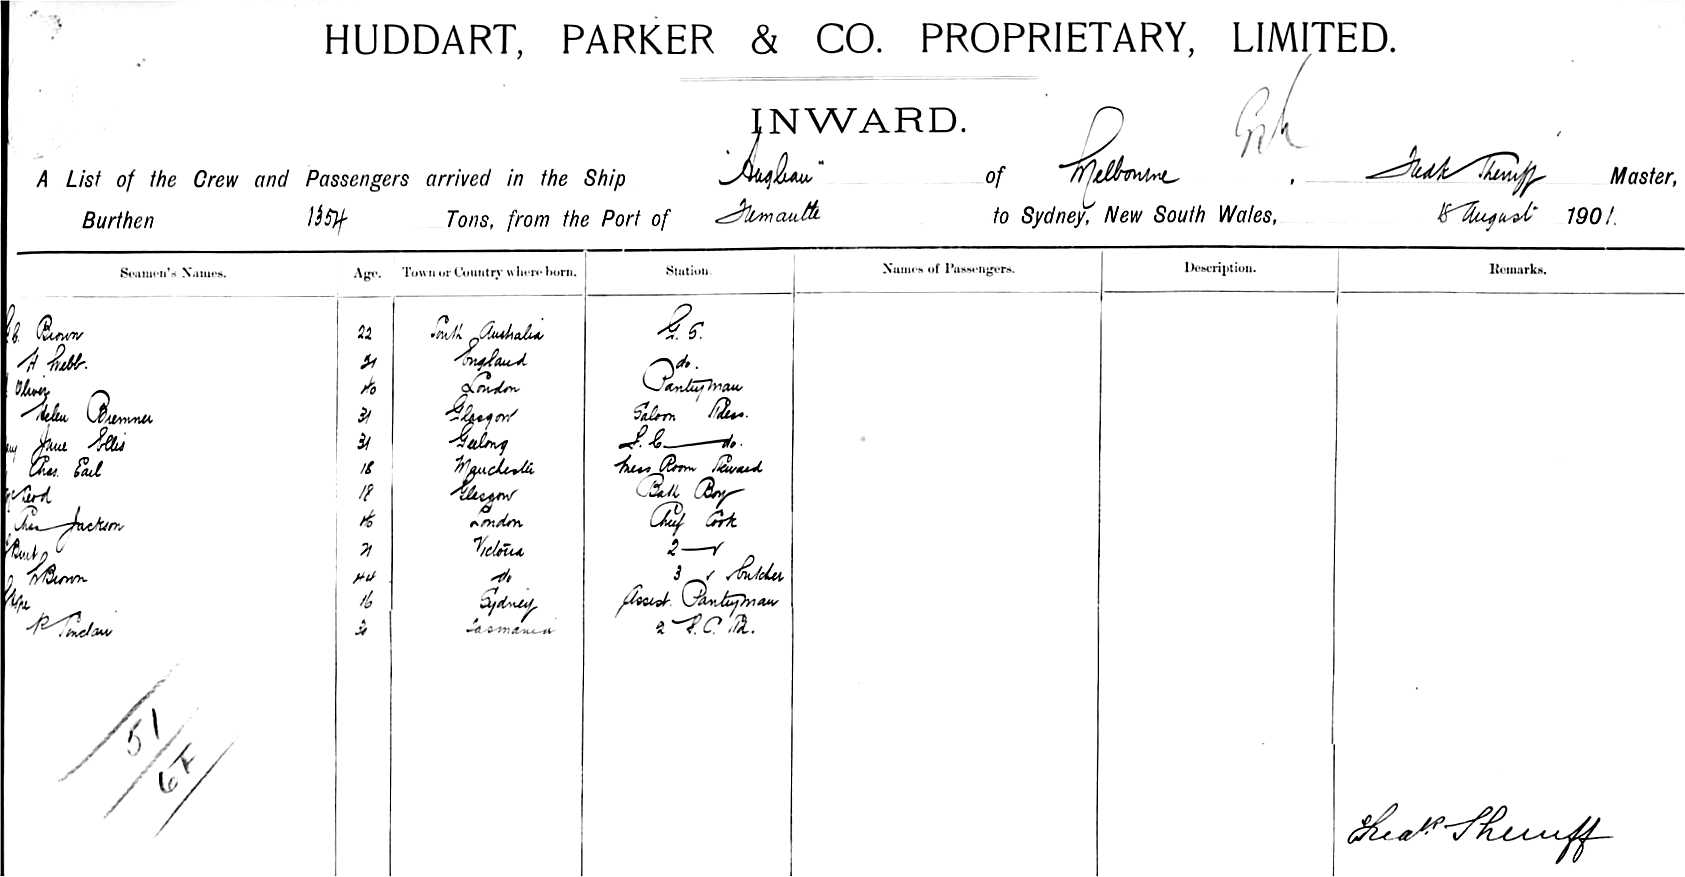 HUDDART, PARKER & CO. PROPRIETARY, LIMITED.
INWARD.
A List of the Crew and Passengers arrived in the Ship "Anglian" of Melbourne, Fredk Sherriff Master,
Burthen 1354 Tons, from the Port of Fremantle to Sydney, New South Wales, 15 August 1901.
Seamen's Names. Age. Town or Country where born. Station Names of Passengers. Description. Remarks.
Brown 22 South Australia G. S.
H Webb. England do.
Oliver 40 London Pantryman
Helen Bremner 31 Glasgow Saloon Stess.
Jane Ellis 31 Geelong S. C do.
Chas. Earl 18 Manchester Mess Room Steward
18 Glasgow Bath Boy
Chas Jackson London Chief Cook
Burt 21 Victoria 2
Brown 44 do 3 butcher
16 Sydney Assist. Pantryman
R Sinclair Tasmania 2 S. C. Std.
51
64
Fredk Sherriff